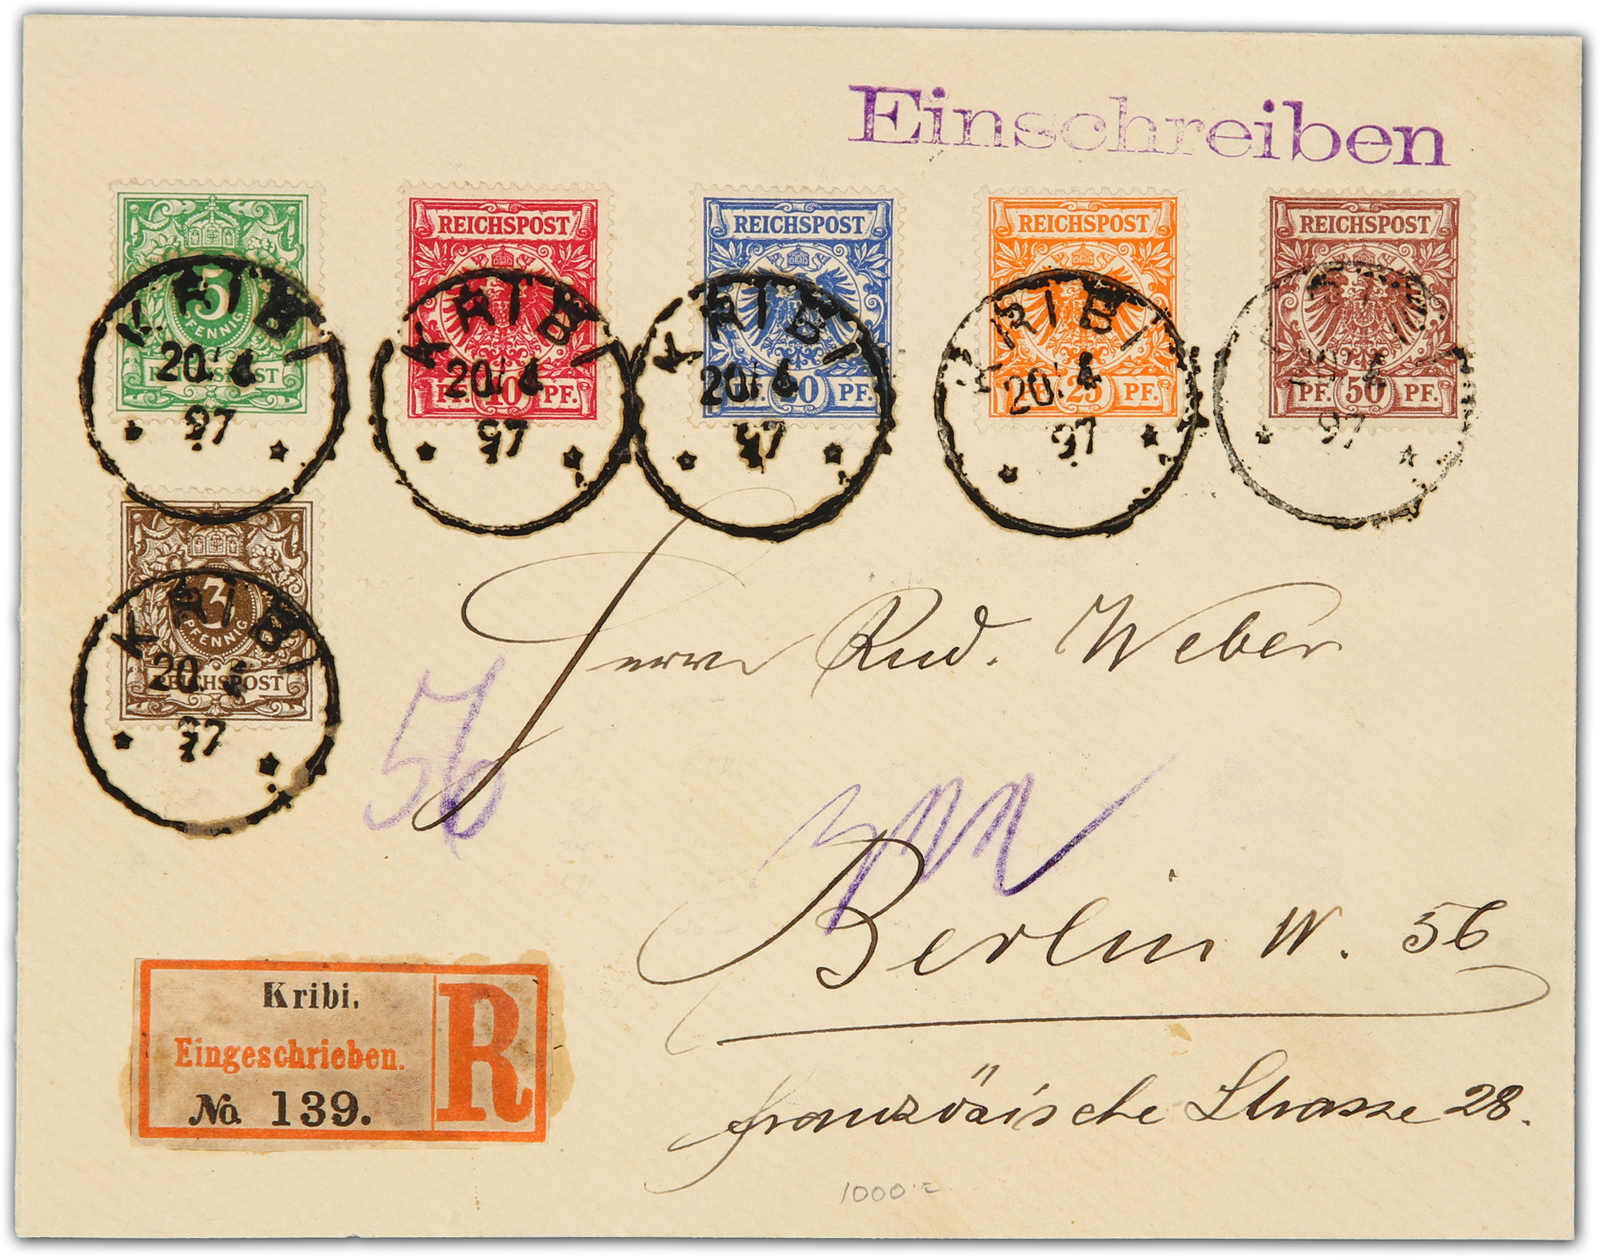 Einschreiben
5
PFENNIG
REICHSPOST
KRIBI
20/4
97
REICHSPOST
PF. 10 PF.
KRIBI
20/4
97
REICHSPOST
PF. 20 PF.
KRIBI
20/4
97
REICHSPOST
PF. 25 PF.
KRIBI
20/4
97
REICHSPOST
PF. 50 PF.
KRIBI
20/4
97
3
PFENNIG
REICHSPOST
KRIBI
20/4
97
Herrn Rud. Weber
56
Berlin W. 56
Französische Strasse 28.
Kribi.
Eingeschrieben.
No 139.
R
1000